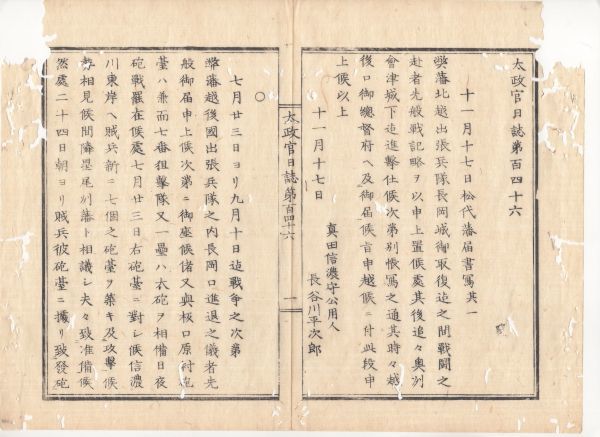 太政官日誌第百四十六
十一月十七日松代藩届書寫其一
弊藩北越出張兵隊長岡城御取復迄之間戰鬪之
趣者先般戰記略ヲ以申上置候處其後追々奥州
會津城下迄進擊仕候次第別帳寫之通其時々越
後口御總督府ヘ及御届候旨申越候ニ付此段申
上候以上
十一月十七日
眞田信濃守公用人
長谷川平次郎
太政官日誌第百四十六
一
○
七月廿三日ヨリ九月十日迄戰爭之次第
弊藩越後國出張兵隊之内長岡口進退之儀者先
般御届申上候次第ニ御座候偖又與板口原村砲
臺ハ兼而七番狙擊隊又一壘ハ大砲ヲ相備日夜
砲戰罷在候處七月廿三日右砲臺ニ對シ候信濃
川東岸ヘ賊兵新ニ七個之砲臺ヲ築キ及攻擊候
勢相見候間隣壘尾州藩ト相議シ夫々致准備候
然處二十四日朝ヨリ賊兵彼砲臺ニ據リ致發砲